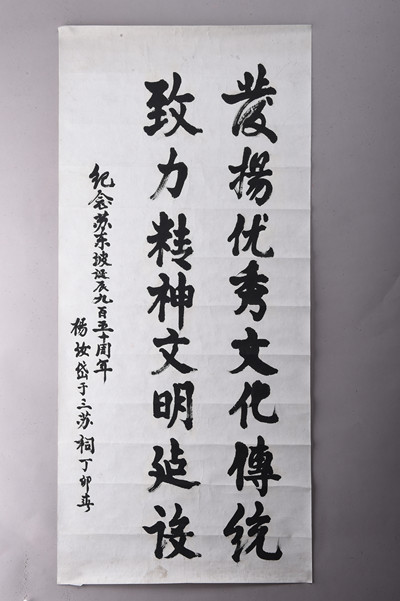 發揚优秀文化傳统
致力精神文明建设
纪念苏东坡诞辰九百五十周年
杨汝岱于三苏祠丁卯春